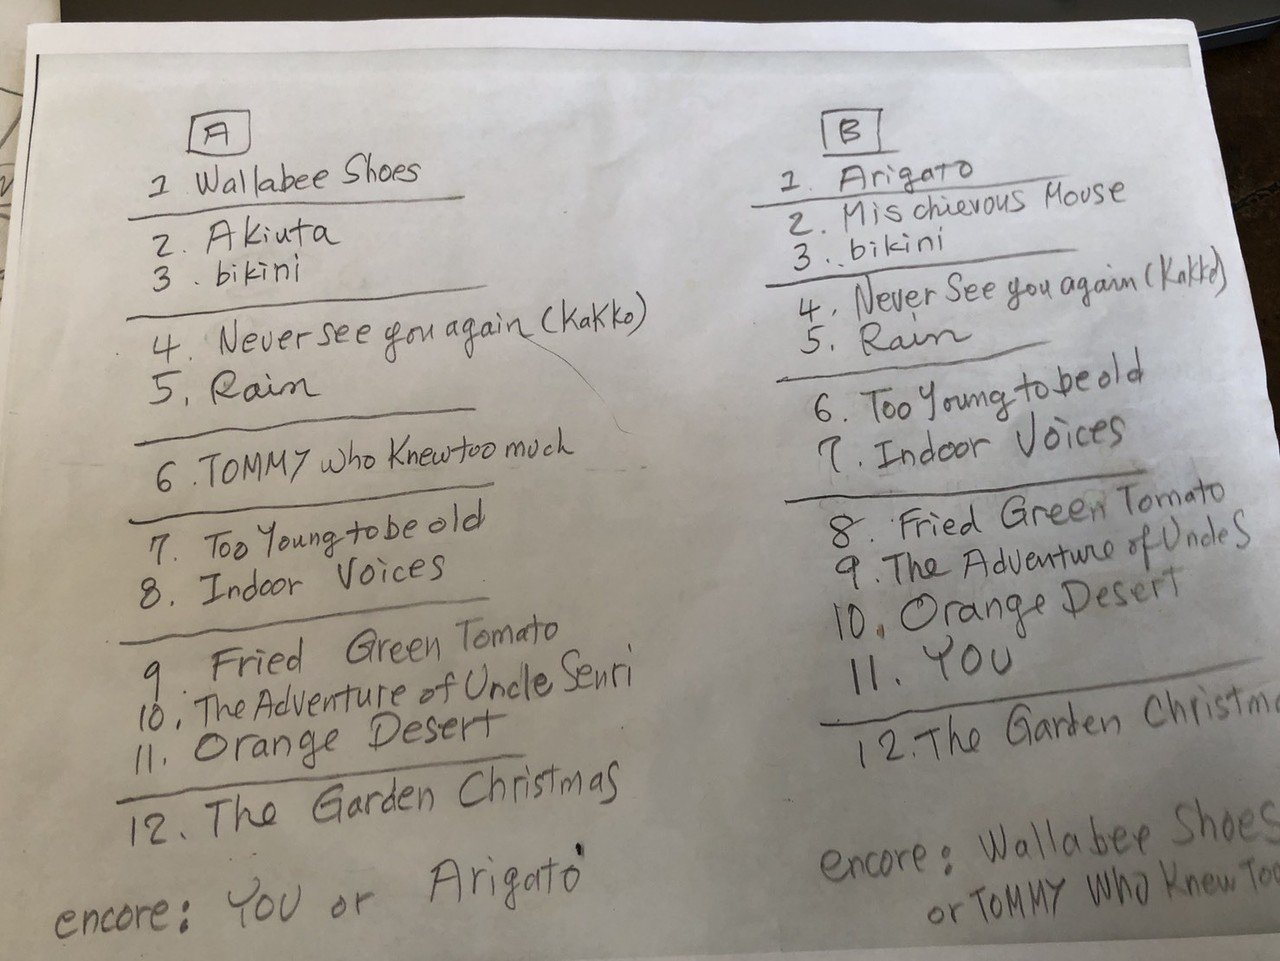 A
1 Wallabee Shoes
2. Akiuta
3. bikini
4. Never see you again (Kakko)
5. Rain
6. TOMMY who Knew too much
7. Too Young to be old
8. Indoor Voices
9. Fried Green Tomato
10. The Adventure of Uncle Senri
11. Orange Desert
12. The Garden Christmas
encore: YOU or Arigato
B
1. Arigato
2. Mischievous Mouse
3. bikini
4. Never See you again (Kakko)
5. Rain
6. Too Young to be old
7. Indoor Voices
8. Fried Green Tomato
9. The Adventure of Uncle S
10. Orange Desert
11. YOU
12. The Garden Christm
encore: Wallabee Shoes
or TOMMY Who Knew Too